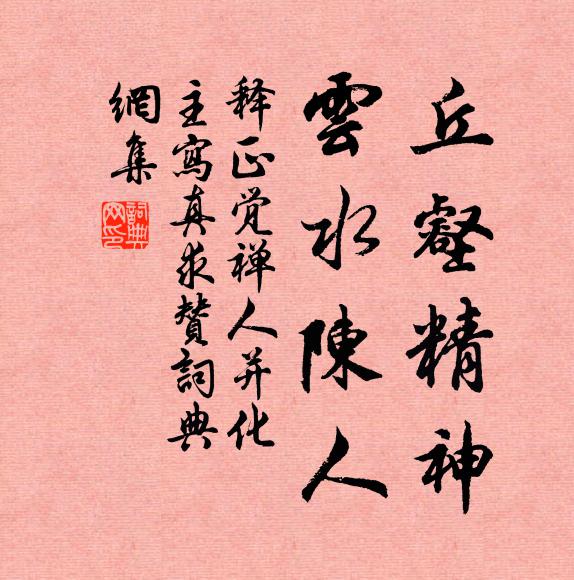 丘壑精神
雲水陳人
释正觉禅人并化
主寫真求贊詞典
網集
詞典網印